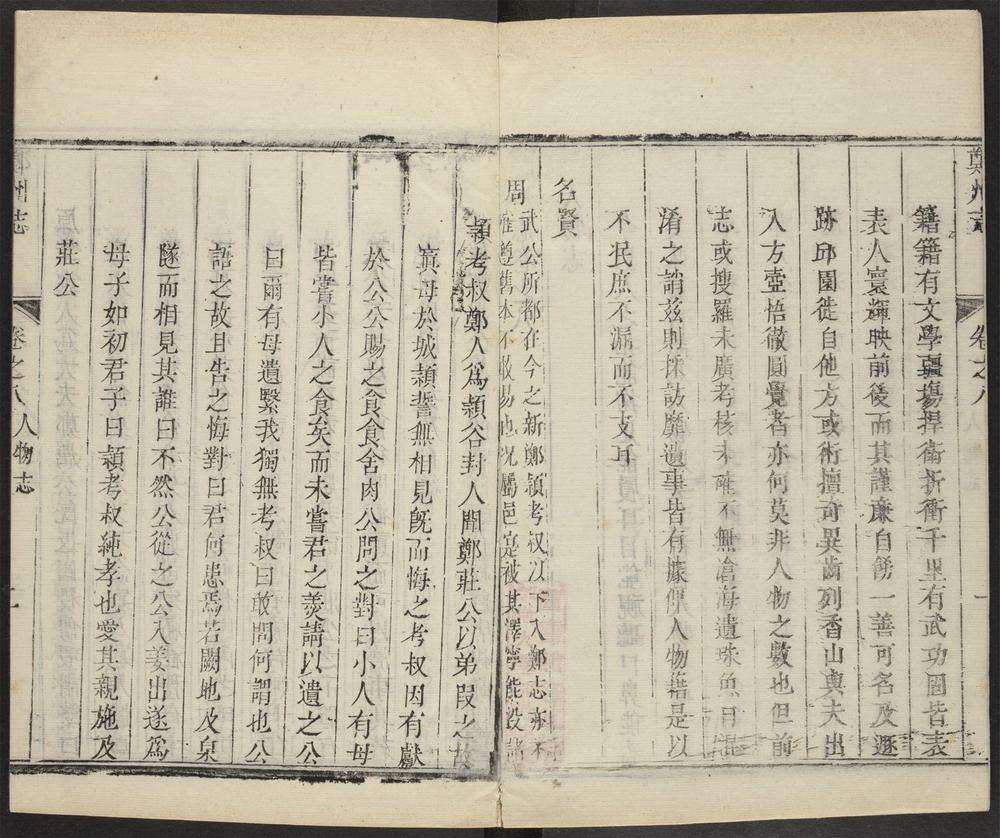 鄭州志
卷之八
籍籍有文學疆場捍衛折衝千里有武功固皆表
表人寰輝映前後而其謹亷自飭一善可名及遯
跡邱園徙自他方或術擅奇異齒列香山與夫出
入方壺悟徹圓覺者亦何莫非人物之數也但前
志或搜羅未廣考核未確不無滄海遺珠魚目混
淆之誚兹則採訪靡遺事皆有據俾人物藉是以
不泯庶不漏而不支耳
名賢
周
武公所都在今之新鄭頴考叔以下入鄭志亦不
遵舊本不敢易也况屬邑寔被其澤寧能没諸
頴考叔鄭人爲頴谷封人聞鄭莊公以弟叚之故
寘母於城頴誓無相見旣而悔之考叔因有獻
於公公賜之食食舍肉公問之對曰小人有母
皆嘗小人之食矣而未嘗君之羮請以遺之公
曰爾有母遺繄我獨無考叔曰敢問何謂也公
語之故且告之悔對曰君何患焉若闕地及泉
隧而相見其誰曰不然公從之公入姜出遂爲
母子如初君子曰頴考叔純孝也愛其親施及
莊公
州志
卷之八 人物志